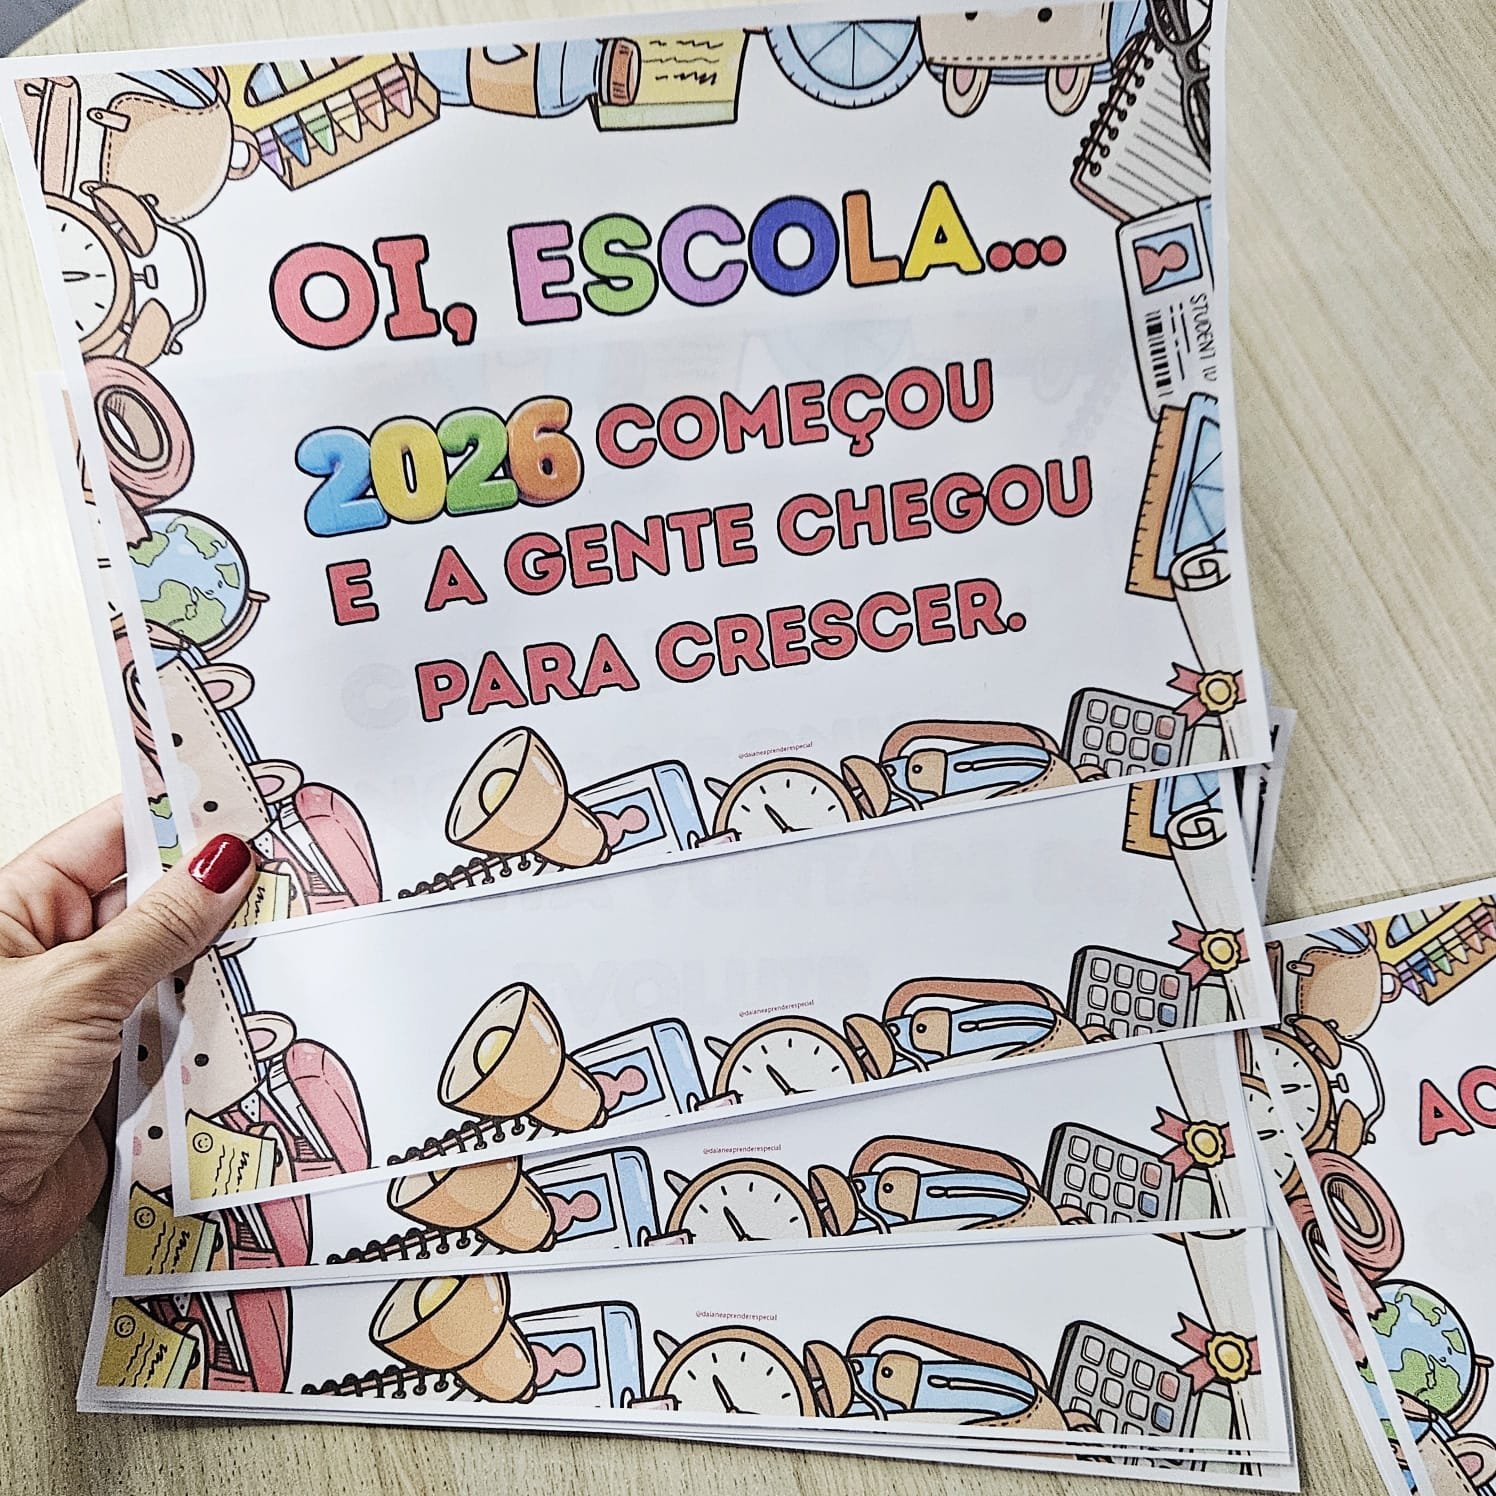 OI, ESCOLA...
2026 COMEÇOU
E A GENTE CHEGOU
PARA CRESCER.
STUDENT ID
@daianeaprenderespecial
@daianeaprenderespecial
@daianeaprenderespecial
@daianeaprenderespecial
AO